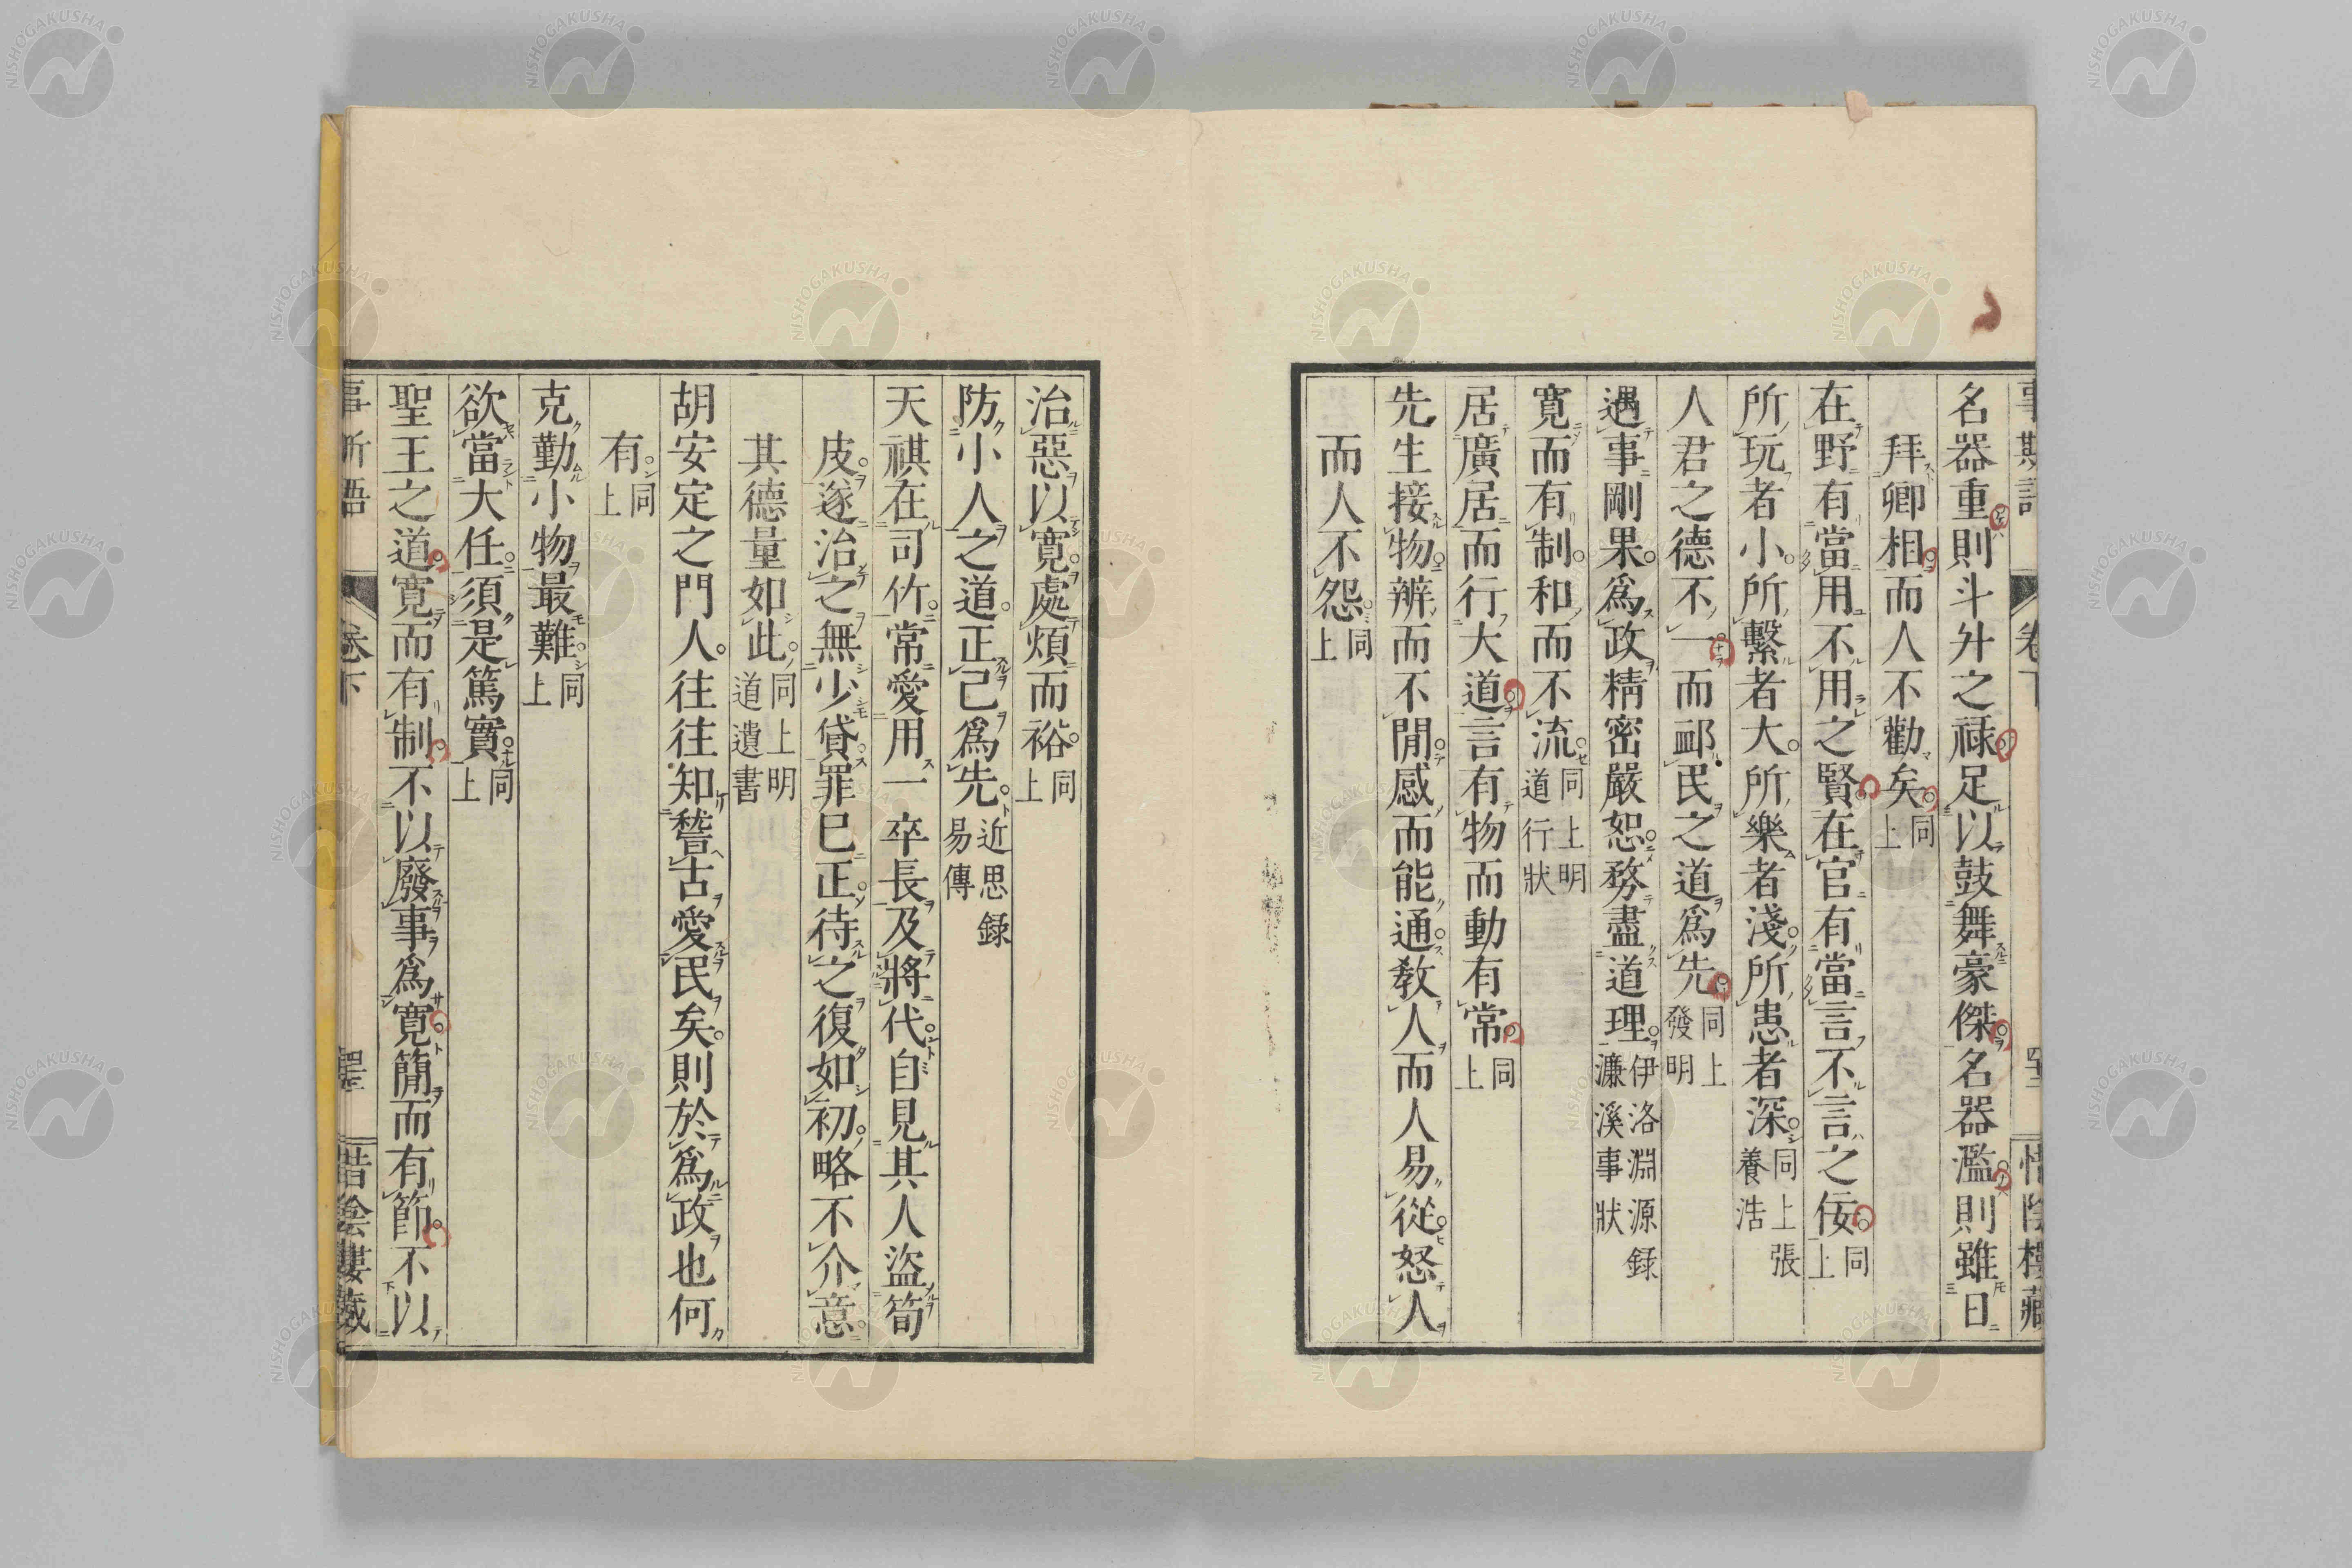 名器重則斗升之祿足以鼓舞豪傑名器濫則雖日
拜卿相而人不勸矣同上
在野有當用不用之賢在官有當言不言之佞同上
所玩者小所繫者大所樂者淺所患者深同上張養浩
人君之德不一而邮民之道爲先同上發明
遇事剛果爲政精密嚴恕務盡道理伊洛淵源録濂溪事狀
寬而有制和而不流同上明道行狀
居廣居而行大道言有物而動有常同上
先生接物辨而不間感而能通教人而人易從怒人
而人不怨同上
治惡以寬處煩而裕同上
防小人之道正己爲先近思録易傳
天祺在司竹常愛用一卒長及將代自見其人盜筍
皮遂治之無少貸罪已正待之復如初略不介意
其德量如此同上明道遺書
胡安定之門人往往知稽古愛民矣則於爲政也何
有同上
克勤小物最難同上
欲當大任須是篤實同上
聖王之道寬而有制不以廢事爲寬簡而有節不以
卷下